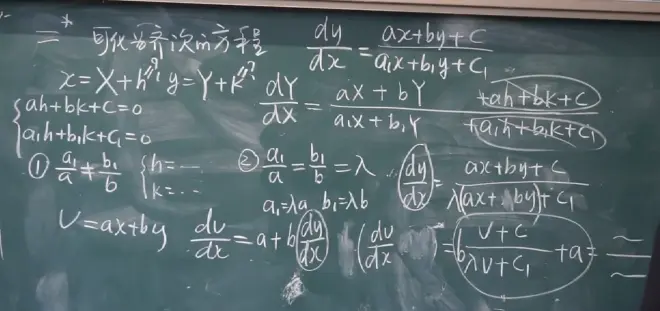 二* 可化为齐次的方程 dy/dx = (ax+by+c)/(a₁x+b₁y+c₁)
x=X+h? y=Y+k? dY/dX = (aX+bY +ah+bk+c)/(a₁X+b₁Y +a₁h+b₁k+c₁)
{ah+bk+c=0
a₁h+b₁k+c₁=0
① a₁/a ≠ b₁/b {h=… k=… ② a₁/a = b₁/b = λ dy/dx = (ax+by+c)/(λ(ax+by)+c₁)
a₁=λa b₁=λb
v=ax+by dv/dx = a+b dy/dx (dv/dx = b (v+c)/(λv+c₁) +a = ~/~